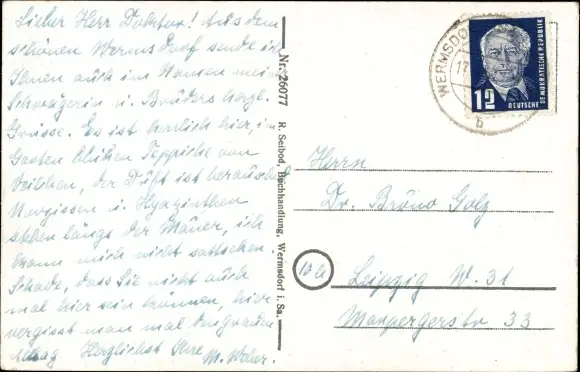 Lieber Herr Doktor! Aus dem
schönen Wermsdorf sende ich
Ihnen auch im Namen mei
Schwägerin u. Bruders herzl.
Grüsse. Es ist herrlich hier, im
Garten blühen Teppiche von
Veilchen, der Duft ist berauschd
Nargissen u. Hyazinthen
stehen längs der Mauer, ich
kann mich nicht sattsehen.
Schade, dass Sie nicht auch
mal hier sein können, hier
vergisst man mal den grauen
Alltag Herzlichst Ihre
Nr. 26077 R. Seibod, Buchhandlung, Wermsdorf i. Sa.
WERMSDO
17
b
12
DEUTSCHE
DEMOKRATISCHE REPUBLIK
Herrn
Dr. Bruno Golz
10b
Leipzig W. 31
33